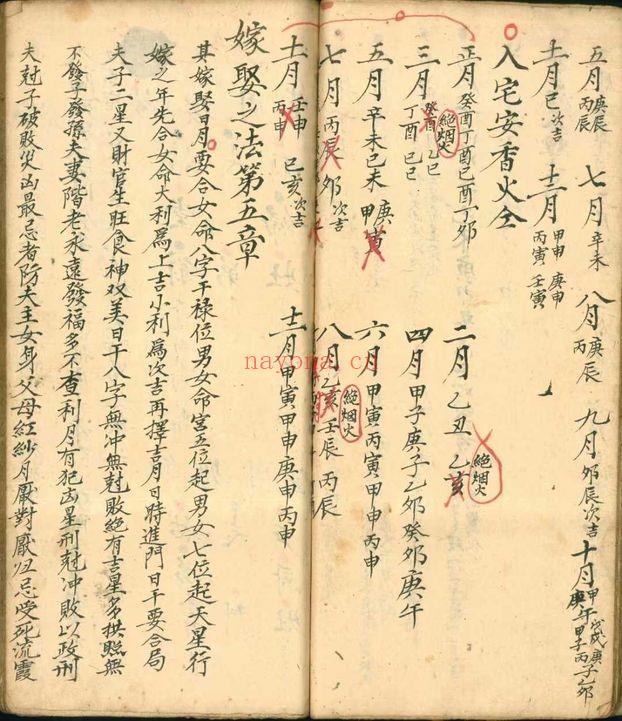 五月 庚辰 丙辰 七月 辛未 八月 庚辰 丙辰 九月 夘辰次吉 十月
十一月 巳次吉 十二月 甲申 庚申 丙寅 壬寅
入宅安香火仝
正月 癸酉丁酉己酉丁夘 二月 乙丑 乙亥 絶烟火
三月 癸酉 丁酉 乙巳 己巳 絶烟火 四月 甲子庚子乙夘癸夘庚午
五月 辛未己未 甲寅 庚寅 六月 甲寅丙寅甲申丙申
七月 丙辰 夘次吉 八月 乙亥 壬辰 丙辰 絶烟火
十一月 壬申 丙申 巳亥次吉 十二月 甲寅甲申庚申丙申
嫁娶之法第五章
其嫁娶日月要合女命八字干祿位男女命宮五位起男女七位起天星行
嫁之年先合女命大利為上吉小利為次吉再擇吉月日時進門日干要合局
夫子二星又財官生旺食神双美日干八字無冲無尅敗絶有吉星多拱照無
不發子發孫夫妻階老永遠發福多不查利月有犯凶星刑尅冲敗以政刑
夫尅子破敗災凶最忌者防夫主女身父母紅紗月厭對厭凶忌受死流霞
nayona.cn